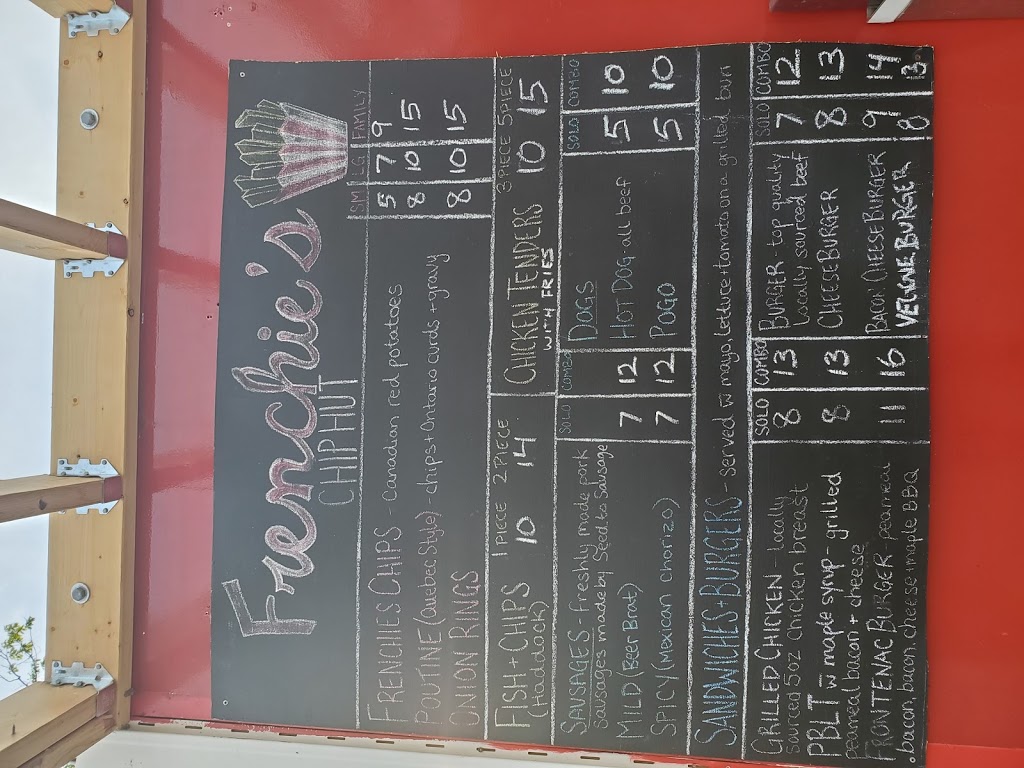 Frenchie's
CHIP HUT
SM LG FAMILY
FRENCHIES CHIPS - Canadian red potatoes 5 7 9
POUTINE (Quebec Style) - chips + Ontario curds + gravy 8 10 15
ONION RINGS 8 10 15
FISH + CHIPS 1 PIECE 2 PIECE
(Haddock) 10 14
CHICKEN TENDERS 3 PIECE 5 PIECE
WITH FRIES 10 15
SAUSAGES - freshly made pork SOLO COMBO
sausages made by Seed to Sausage
MILD (Beer Brat) 7 12
SPICY (Mexican Chorizo) 7 12
DOGS SOLO COMBO
HOT DOG all beef 5 10
POGO 5 10
SANDWICHES + BURGERS - served w mayo, lettuce + tomato on a grilled bun
SOLO COMBO
GRILLED CHICKEN - locally 8 13
sourced 5oz chicken breast
PBLT w maple syrup - grilled 8 13
peameal bacon + cheese
FRONTENAC BURGER peameal 11 16
bacon, bacon, cheese + maple BBQ
SOLO COMBO
BURGER - top quality 7 12
locally sourced beef
CHEESEBURGER 8 13
BACON CHEESEBURGER 9 14
VEGGIE BURGER 8 13